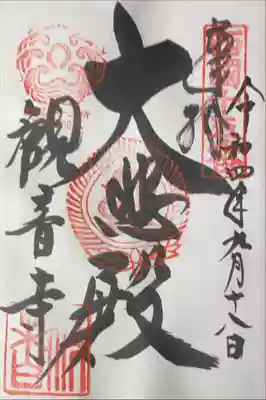 奉拝
令和四年九月十八日
大悲殿
観音寺